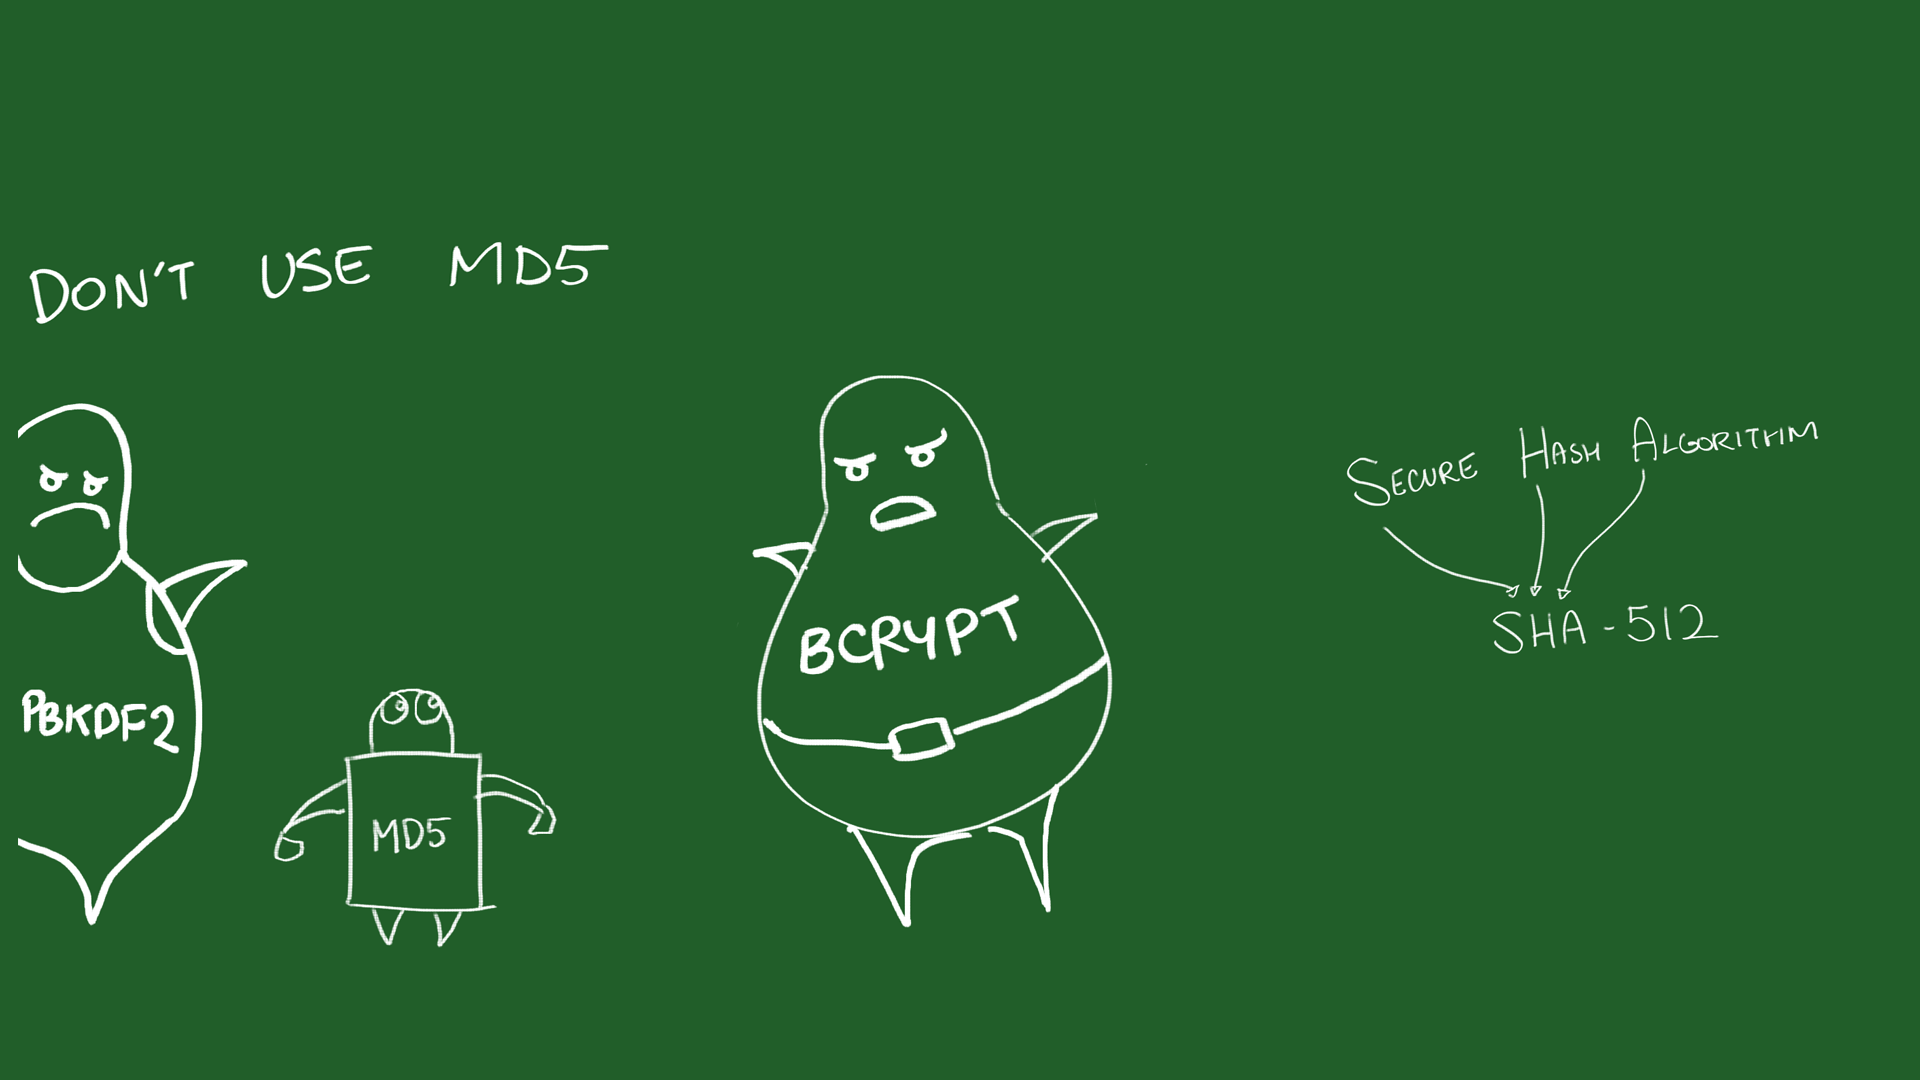 DON'T USE MD5
PBKDF2
MD5
BCRYPT
SECURE HASH ALGORITHM
SHA-512